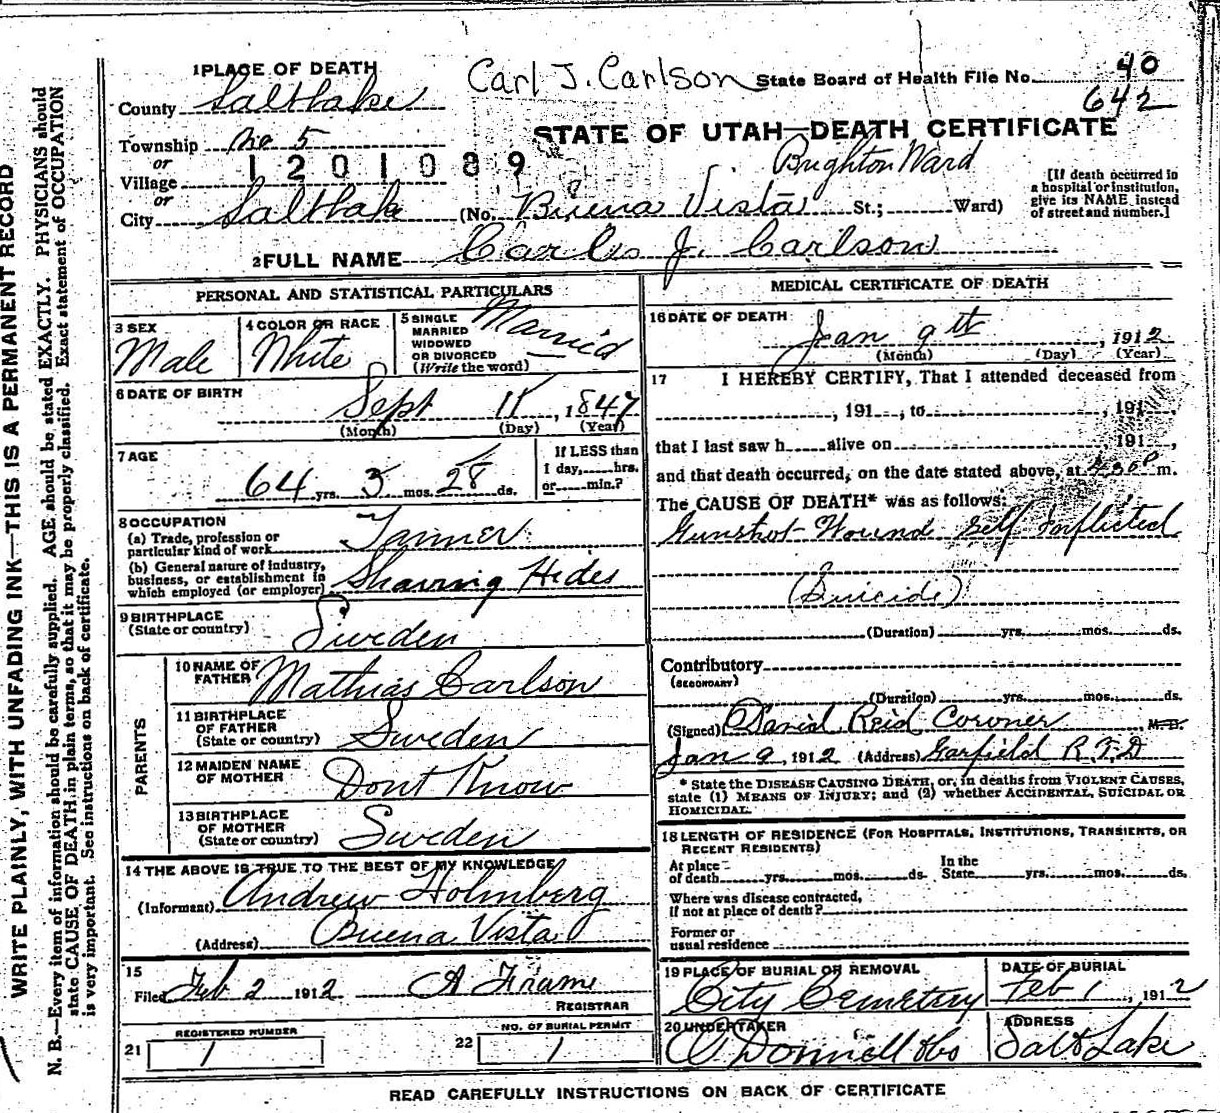 WRITE PLAINLY, WITH UNFADING INK—THIS IS A PERMANENT RECORD
N. B.—Every item of information should be carefully supplied. AGE should be stated EXACTLY. PHYSICIANS should
state CAUSE OF DEATH in plain terms, so that it may be properly classified. Exact statement of OCCUPATION
is very important. See instructions on back of certificate.
1 PLACE OF DEATH
Carl J. Carlson
State Board of Health File No. 40
642
County Saltlake
STATE OF UTAH—DEATH CERTIFICATE
Township No 5
or
1201089
Brighton Ward
Village
or
City Saltlake (No. Buena Vista St.; Ward)
[If death occurred in
a hospital or institution,
give its NAME instead
of street and number.]
2 FULL NAME Carls J. Carlson
PERSONAL AND STATISTICAL PARTICULARS
3 SEX
Male
4 COLOR OR RACE
White
5 SINGLE
MARRIED
WIDOWED
OR DIVORCED
(Write the word)
Married
6 DATE OF BIRTH
Sept 11, 1847
(Month) (Day) (Year)
7 AGE
64 yrs. 3 mos. 28 ds.
If LESS than
1 day, hrs.
or min.?
8 OCCUPATION
(a) Trade, profession or
particular kind of work Tanner
(b) General nature of industry,
business, or establishment in
which employed (or employer) Shaving Hides
9 BIRTHPLACE
(State or country) Sweden
PARENTS
10 NAME OF
FATHER Mathias Carlson
11 BIRTHPLACE
OF FATHER
(State or country) Sweden
12 MAIDEN NAME
OF MOTHER Dont Know
13 BIRTHPLACE
OF MOTHER
(State or country) Sweden
14 THE ABOVE IS TRUE TO THE BEST OF MY KNOWLEDGE
(Informant) Andrew Holmberg
(Address) Buena Vista
15
Filed Feb 2 1912 A Frame
REGISTRAR
REGISTERED NUMBER
21 1
NO. OF BURIAL PERMIT
22 1
MEDICAL CERTIFICATE OF DEATH
16 DATE OF DEATH
Jan 9th, 1912
(Month) (Day) (Year)
17 I HEREBY CERTIFY, That I attended deceased from
, 191 , to , 191 ,
that I last saw h alive on , 191 ,
and that death occurred, on the date stated above, at m.
The CAUSE OF DEATH* was as follows:
Gunshot Wound Self Inflicted
(Suicide)
(Duration) yrs. mos. ds.
Contributory
(SECONDARY)
(Duration) yrs. mos. ds.
(Signed) David Reid Coroner M. D.
Jan 9, 1912 (Address) Garfield R.F.D
* State the DISEASE CAUSING DEATH, or, in deaths from VIOLENT CAUSES,
state (1) MEANS OF INJURY; and (2) whether ACCIDENTAL, SUICIDAL OR
HOMICIDAL.
18 LENGTH OF RESIDENCE (FOR HOSPITALS, INSTITUTIONS, TRANSIENTS, OR
RECENT RESIDENTS)
At place
of death yrs. mos. ds.
In the
State yrs. mos. ds.
Where was disease contracted,
if not at place of death?
Former or
usual residence
19 PLACE OF BURIAL OR REMOVAL
City Cemetery
DATE OF BURIAL
Feb 1, 1912
20 UNDERTAKER
O Donnell &Co
ADDRESS
Salt Lake
READ CAREFULLY INSTRUCTIONS ON BACK OF CERTIFICATE